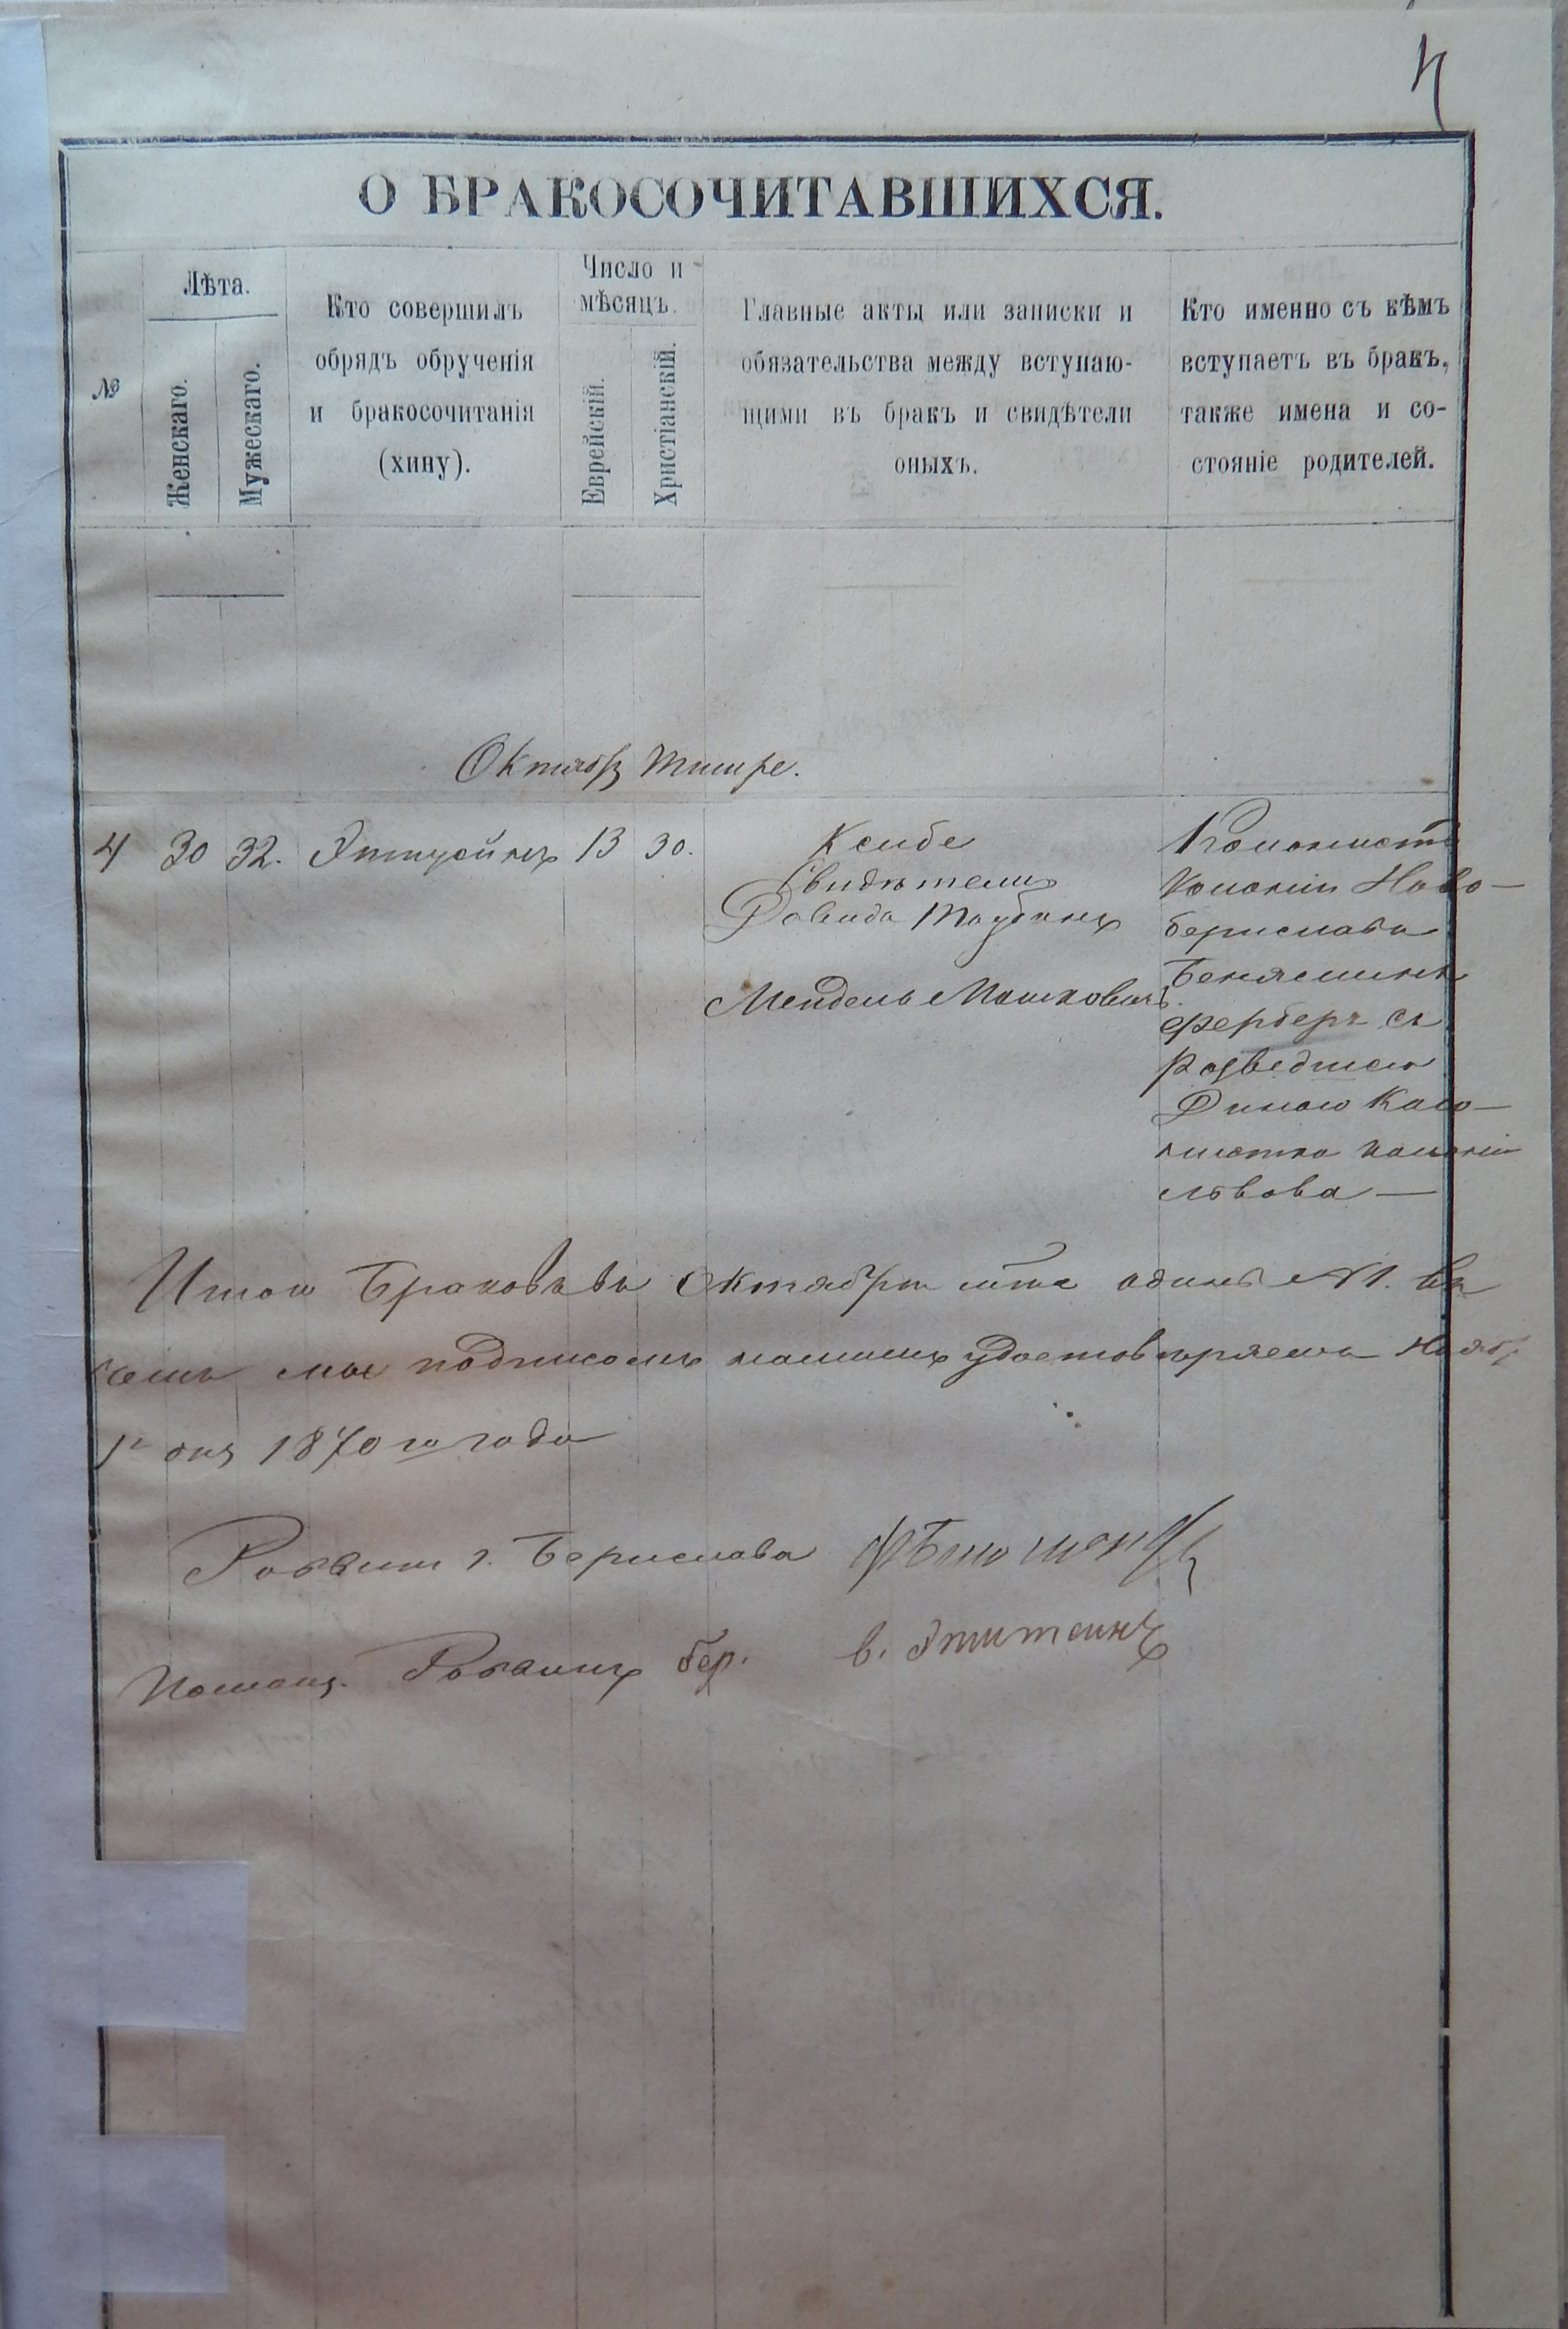 4
О БРАКОСОЧИТАВШИХСЯ.
№
Лѣта.
Женскаго.
Мужескаго.
Кто совершилъ
обрядъ обрученія
и бракосочитанія
(хипу).
Число и
мѣсяцъ.
Еврейскій.
Христіанскій.
Главные акты или записки и
обязательства между вступаю-
щими въ бракъ и свидѣтели
оныхъ.
Кто именно съ кѣмъ
вступаетъ въ бракъ,
также имена и со-
стояніе родителей.
Октябрь Тишре.
4 30 32. 13 30.
Ксибе
Свидѣтели
Давидъ
Мендель Машковичъ
Колонистъ
колоніи Ново-
берислава
Беняминъ
Ферберъ съ
разведшею
Диною Коло-
нистка колоніи
Львова —
Итого Браковъ въ Октябрѣ одинъ №1. въ
чемъ мы подписомъ нашимъ удостоверяемъ Ноябр
1 дня 1870 го года
Раввинъ г. Берислава
Помощ. Раввинъ бер. в. Эпштеинъ